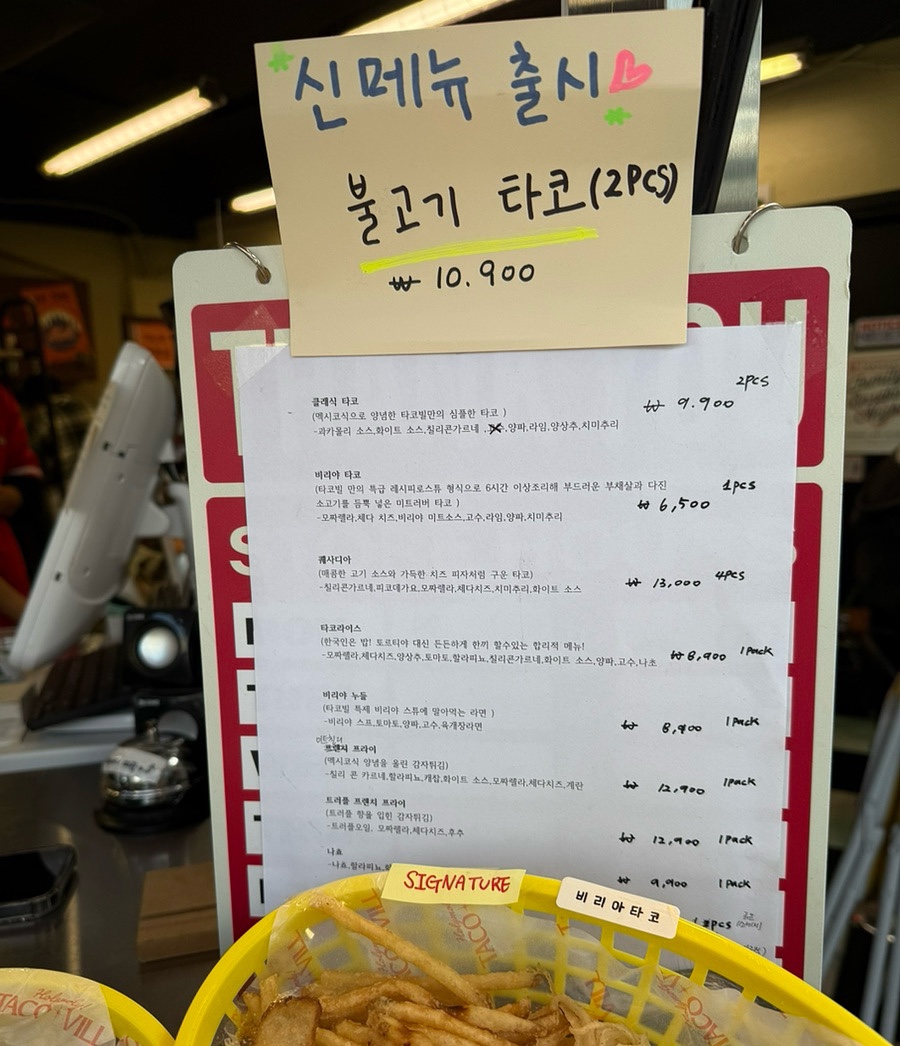 신메뉴 출시
불고기 타코(2PCS)
₩ 10.900
2pcs
클래식 타코
₩ 9.900
(멕시코식으로 양념한 타코빌만의 심플한 타코 )
-과카몰리 소스,화이트 소스,칠리콘가르네 ,양파,라임,양상추,치미추리
비리야 타코
(타코빌 만의 특급 레시피로스튜 형식으로 6시간 이상조리해 부드러운 부채살과 다진
1pcs
소고기를 듬뿍 넣은 미트러버 타코 )
₩ 6,500
-모짜렐라,체다 치즈,비리야 미트소스,고수,라임,양파,치미추리
퀘사디아
(매콤한 고기 소스와 가득한 치즈 피자처럼 구운 타코)
₩ 13,000 4pcs
-칠리콘가르네,피코데가요,모짜렐라,체다치즈,치미추리,화이트 소스
타코라이스
(한국인은 밥! 토르티야 대신 든든하게 한끼 할수있는 합리적 메뉴!
-모짜렐라,체다치즈,양상추,토마토,할라피뇨,칠리콘가르네,화이트 소스,양파,고수,나초
₩ 8,900 1pack
비리야 누들
(타코빌 특제 비리아 스튜에 말아먹는 라면 )
-비리야 스프,토마토,양파,고수,육개장라면
₩ 8,900 1pack
프렌치 프라이
(멕시코식 양념을 올린 감자튀김)
-칠리 콘 카르네,할라피뇨,캐찹,화이트 소스,모짜렐라,체다치즈,계란
₩ 12,900 1pack
트러플 프렌치 프라이
(트러플 향을 입힌 감자튀김)
-트러플오일, 모짜렐라,체다치즈,후추
₩ 12,900 1pack
나쵸
-나쵸,할라피뇨
₩ 9,900 1pack
pcs
SIGNATURE
비리아타코
TACO VILL